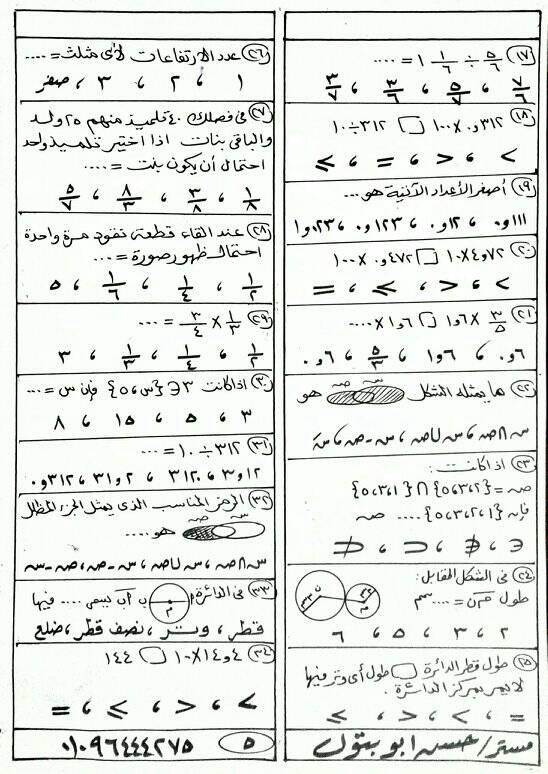 (١٧) ٥/٦ ÷ ١ ١/٦ = ....
٧/٦ ، ٥/٧ ، ٣/٦ ، ٣/٧
(١٨) ٣١٢و٠ × ١٠٠ □ ٣١٢ ÷ ١٠
> ، < ، = ، ≥
(١٩) أصغر الأعداد الآتية هو ...
١١١و٠ ، ١٢و٠ ، ١٢٣و٠ ، ٠٢٣و١
(٢٠) ٤٧٢و × ١٠ □ ٤٧٢و٠ × ١٠٠
> ، < ، ≥ ، =
(٢١) ٣/٥ × ٦و١ □ ٦و١ × ....
٦و٠ ، ٦و١ ، ٥/٣ ، ٦و٠
(٢٢) ما يمثله الشكل س ص هو
س ∩ ص ، س ∪ ص ، س - ص ، سَ
(٢٣) اذا كانت :
ص = {١،٣،٥} ∩ {٢،٣،٥}
فإن {١،٢،٣،٥} .... ص
∈ ، ∉ ، ⊂ ، ⊄
(٢٤) فى الشكل المقابل :
طول م ن = .... سم
٢ ، ٣ ، ٥ ، ٦
(٢٥) طول قطر الدائرة □ طول أى وتر فيها
لا يمر بمركز الدائرة .
= ، > ، < ، ≤
مستر / حسن ابو بتول
(٢٦) عدد الارتفاعات لأى مثلث = ....
١ ، ٢ ، ٣ ، صفر
(٢٧) فى فصلك ٤٠ تلميذ منهم ٢٥ ولد
والباقى بنات اذا اختير تلميذ واحد
احتمال أن يكون بنت = ....
١/٨ ، ٣/٨ ، ٨/٣ ، ٥/٧
(٢٨) عند القاء قطعة نقود مرة واحدة
احتمال ظهور صورة = ....
١/٢ ، ١/٤ ، ١/٦ ، ٥
(٢٩) ١/٣ × ٣/٤ = ....
١/٢ ، ١/٤ ، ١/٣ ، ٣
(٣٠) اذا كانت ٣ ∈ {س ، ٥} فإن س = ....
٣ ، ٥ ، ١٥ ، ٨
(٣١) ٣١٢ ÷ ١٠ = ....
١٢و٣ ، ٢و٣١ ، ٣١٢٠ ، ٣١٢و٠
(٣٢) الرمز المناسب الذى يمثل الجزء المظلل
س ص هو ....
س ∩ ص ، س ∪ ص ، س - ص ، ص - س
(٣٣) فى الدائرة م أ ب يسمى .... فيها
قطر ، وتر ، نصف قطر ، ضلع
(٣٤) ٤و١٤ × ١٠ □ ١٤٤
> ، < ، ≥ ، =
٥
٠١٠٩٦٤٤٤٢٧٥